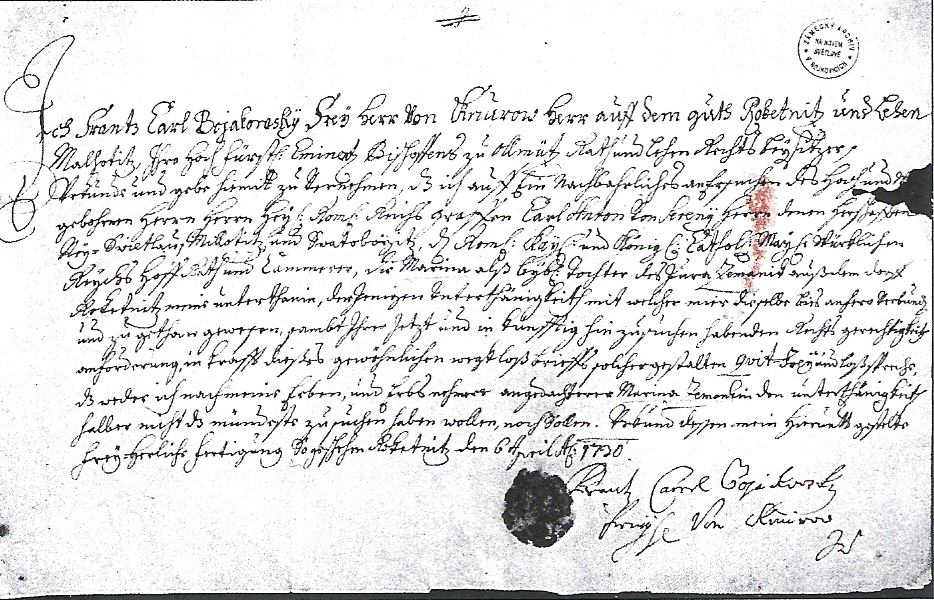 ZÁMECKÝ ARCHIV
NA NOVÉM
SVĚTLOVĚ
V BOJKOVICÍCH
Ich Frantz Carl Bojakowsky Frey Herr Von Knurow Herr auff dem guth Roketnitz und Lehen
Malhotitz, Ihro Hoch fürstl: Eminentz Bischoffens zu Ollmütz Rath und Lehen Rechts beysitzer,
Uhrkunde und gebe hiemit zu Vernehmen, dß ich auff Ein Nachbahrliches anersuchen des Hoch und
gebohrnen Herrn Herrn Heyl: Röm: Reichs Graffen Carl Anton Von Sereny Herrn deren Herschafften
Neÿ Swietlau, Milotitz und Swatoborsitz, der Röm: Kaÿ: und König: Cathol: Maÿ: Würklichen
Reichs Hoff Rath und Cammerer, die Marina alß Tochter des Jura auß dem dorff
Roketnitz meine unterthanin, derjenigen Unterthänigkeith mit welcher mier dieselbe bies anhero Verbundt
und zu gethan gewesen, sambt Ihrer Jetzt und in künfftig hin zu suchen habenden Rechts gerechtigkeit
anforderung in krafft dießes gewöhnlichen weeg loß brieffs solcher gestalten qvit Freÿ und loß spreche,
dß weder ich noch meine Erben, und Erbs nehmere angedachter Marina den unterthänigkeit
halber nicht dß mündeste zu suchen haben wollen, noch sollen. Uhrkund dessen mein Hierunter gestelte
Freÿ Herliche fertigung So geschehen Roketnitz den 6 April Aõ: 1730.
Frantz Carl Bojakowskÿ
Freÿh Von Knurow